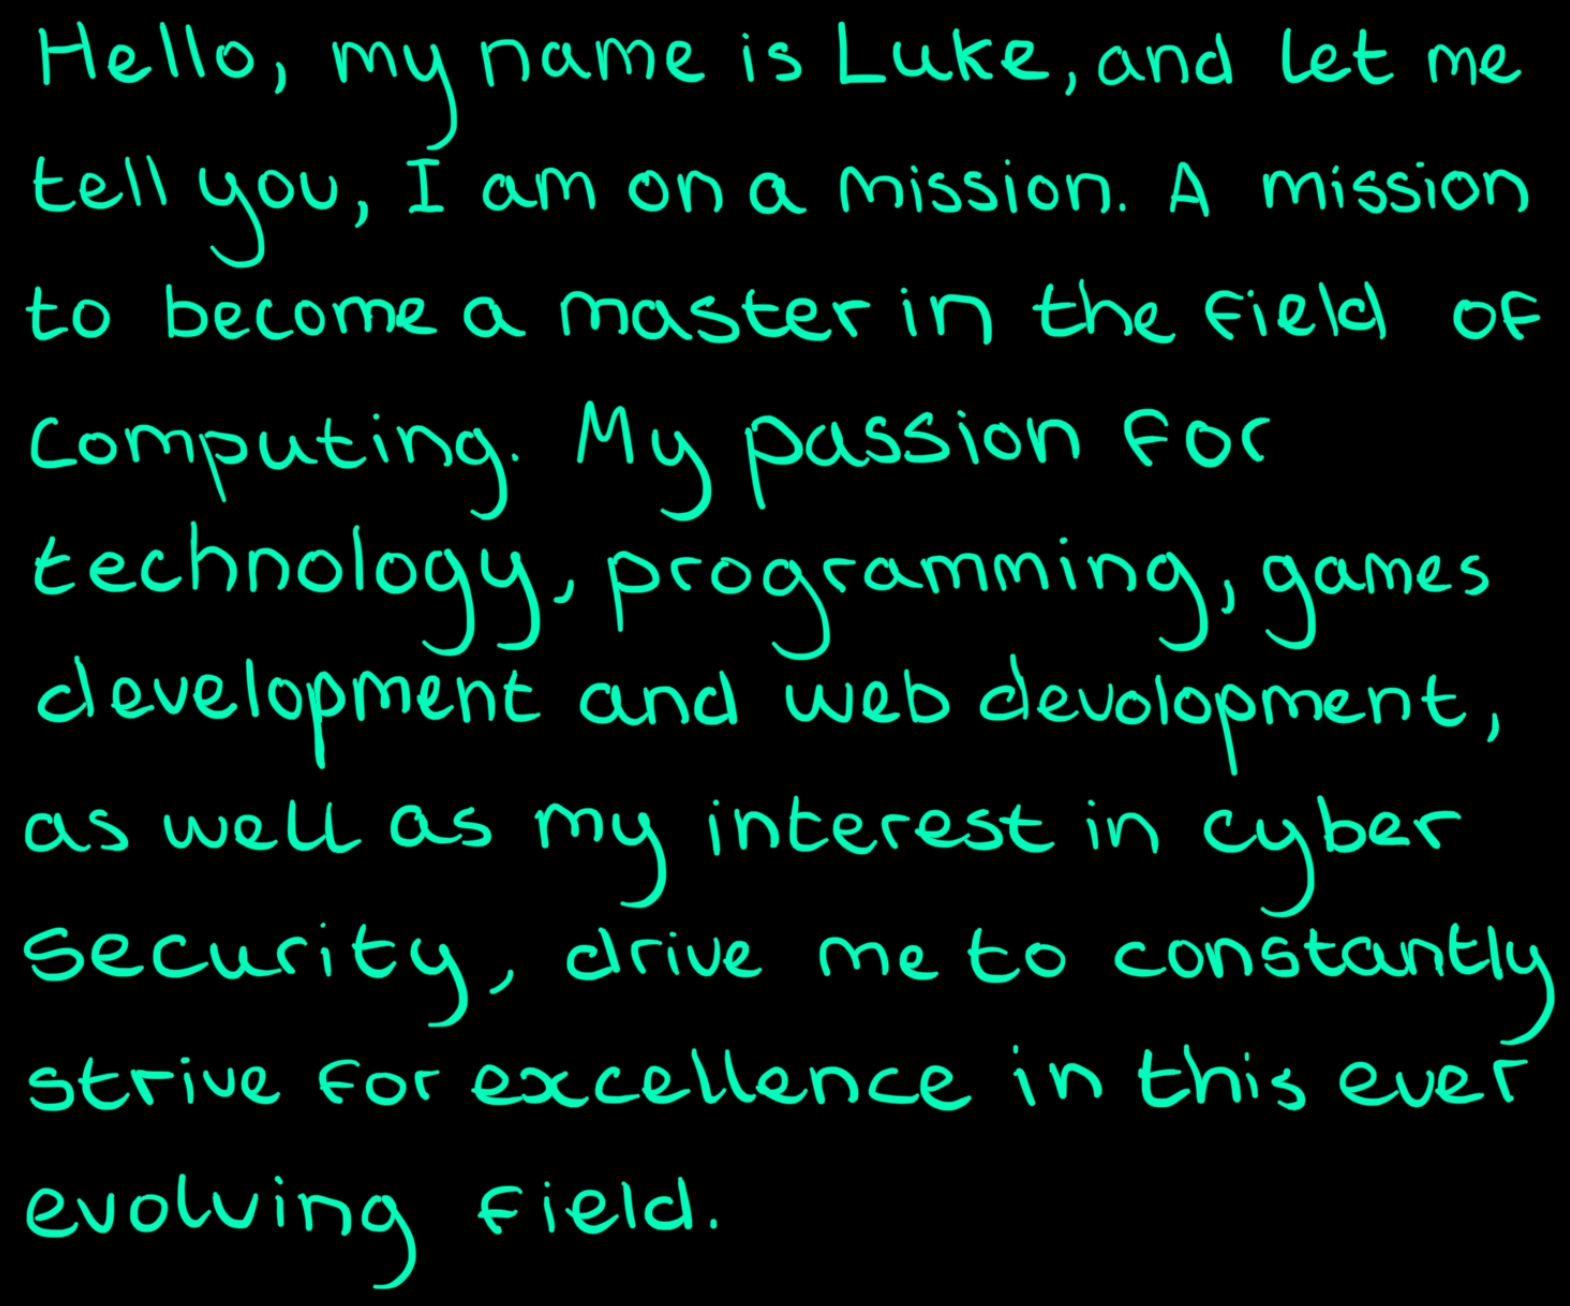 Hello, my name is Luke, and let me
tell you, I am on a mission. A mission
to become a master in the field of
computing. My passion for
technology, programming, games
development and web devolopment,
as well as my interest in cyber
security, drive me to constantly
strive for excellence in this ever
evolving field.